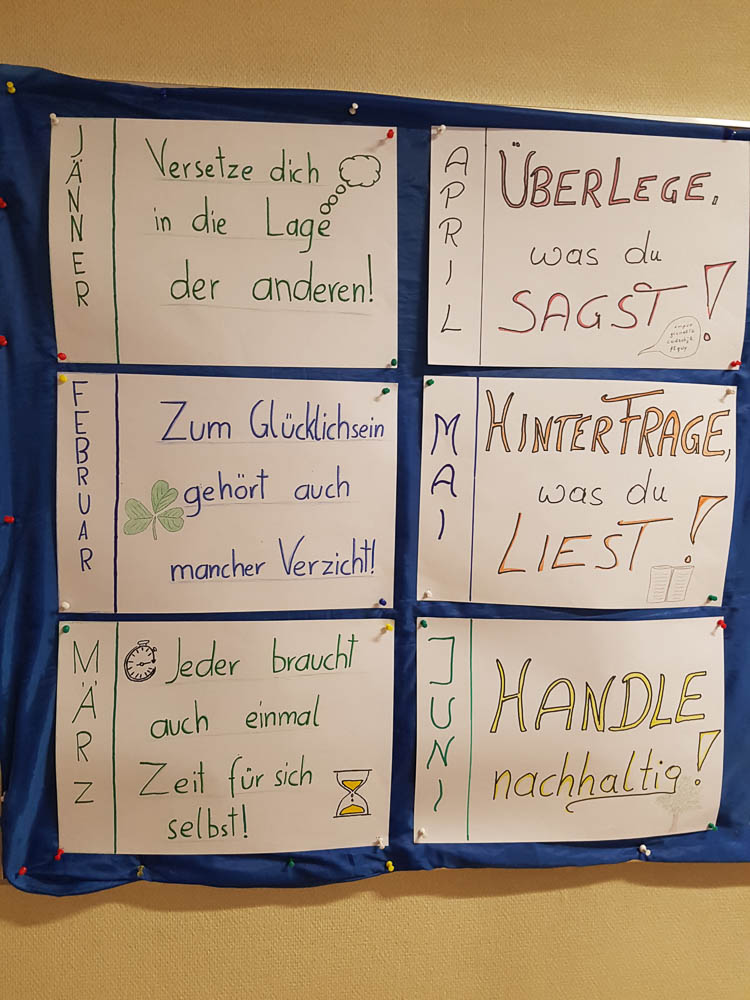 JÄNNER
Versetze dich
in die Lage
der anderen!
FEBRUAR
Zum Glücklichsein
gehört auch
mancher Verzicht!
MÄRZ
Jeder braucht
auch einmal
Zeit für sich
selbst!
APRIL
ÜBERLEGE,
was du
SAGST!
MAI
HINTERFRAGE,
was du
LIEST!
JUNI
HANDLE
nachhaltig!